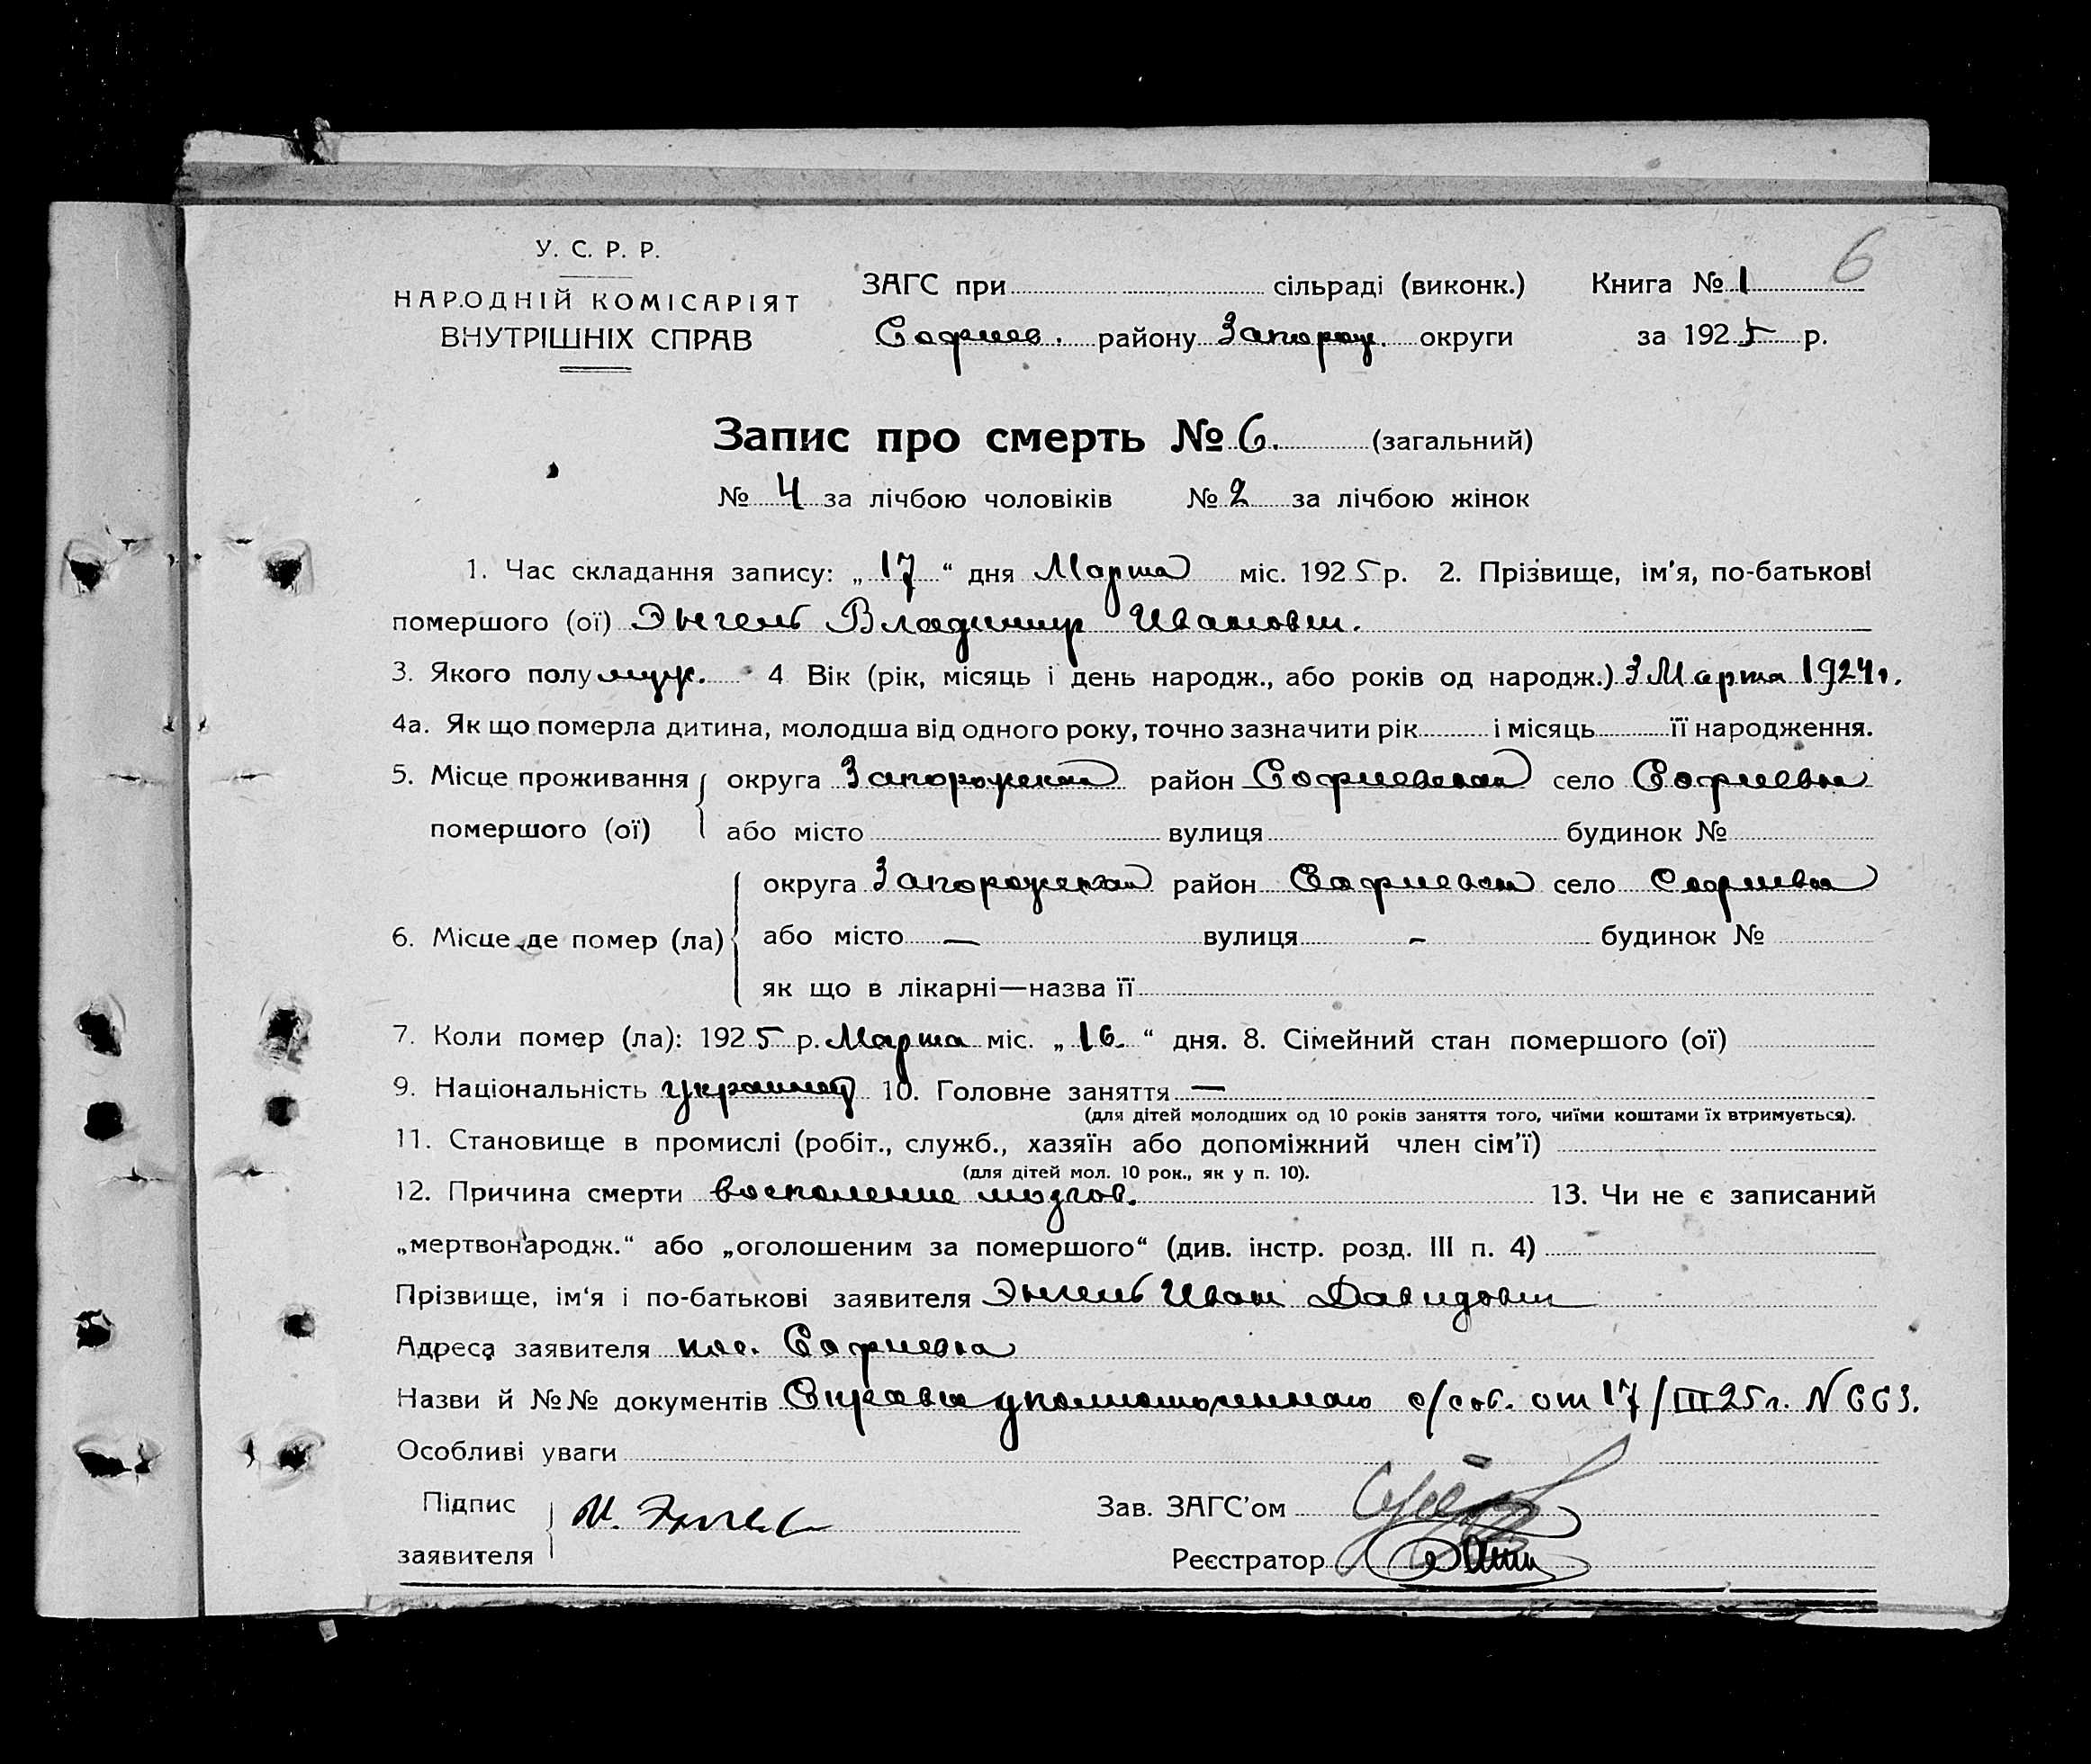 6
У. С. Р. Р.
НАРОДНІЙ КОМІСАРІЯТ
ВНУТРІШНІХ СПРАВ
ЗАГС при сільраді (виконк.) Книга № 1
Софиев. району Запорож. округи за 1925 р.
Запис про смерть № 6. (загальний)
№ 4 за лічбою чоловіків № 2 за лічбою жінок
1. Час складання запису: „17“ дня Марта міс. 1925 р. 2. Прізвище, ім'я, по-батькові
помершого (ої) Энгель Владимир Иванович.
3. Якого полу муж. 4 Вік (рік, місяць і день народж., або років од народж.) 3 Марта 1924 г.
4а. Як що померла дитина, молодша від одного року, точно зазначити рік і місяць її народження.
5. Місце проживання округа Запорожская район Софиевская село Софиевка
помершого (ої) або місто вулиця будинок №
округа Запорожская район Софиевск село Софиевка
6. Місце де помер (ла) або місто — вулиця - будинок №
як що в лікарні—назва її
7. Коли помер (ла): 1925 р. Марта міс. „16.“ дня. 8. Сімейний стан помершого (ої)
9. Національність 10. Головне заняття —
(для дітей молодших од 10 років заняття того, чиїми коштами їх втримується).
11. Становище в промислі (робіт., служб., хазяїн або допоміжний член сім'ї)
(для дітей мол. 10 рок., як у п. 10).
12. Причина смерти воспаление мозгов. 13. Чи не є записаний
„мертвонародж.“ або „оголошеним за помершого“ (див. інстр. розд. III п. 4)
Прізвище, ім'я і по-батькові заявителя Энгель Иван Давидович
Адреса заявителя Софиевка
Назви й №№ документів Справка уполномоченного от 17/III 25 г. N 663.
Особливі уваги
Підпис И. Энгель Зав. ЗАГС'ом
заявителя Реєстратор